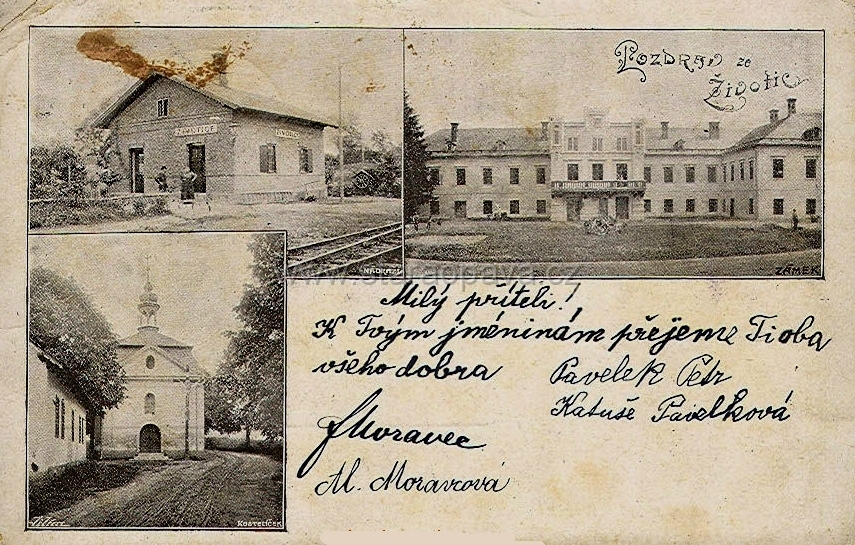 Pozdrav ze
Životic
ŽIVOTICE
NÁDRAŽÍ
ZÁMEK
www.staraopava.cz
Milý příteli!
K Tvým jméninám přejeme Ti oba
všeho dobra
Pavelek Petr
Katuše Pavelková
JMoravec
M. Moravcová
KOSTELÍČEK